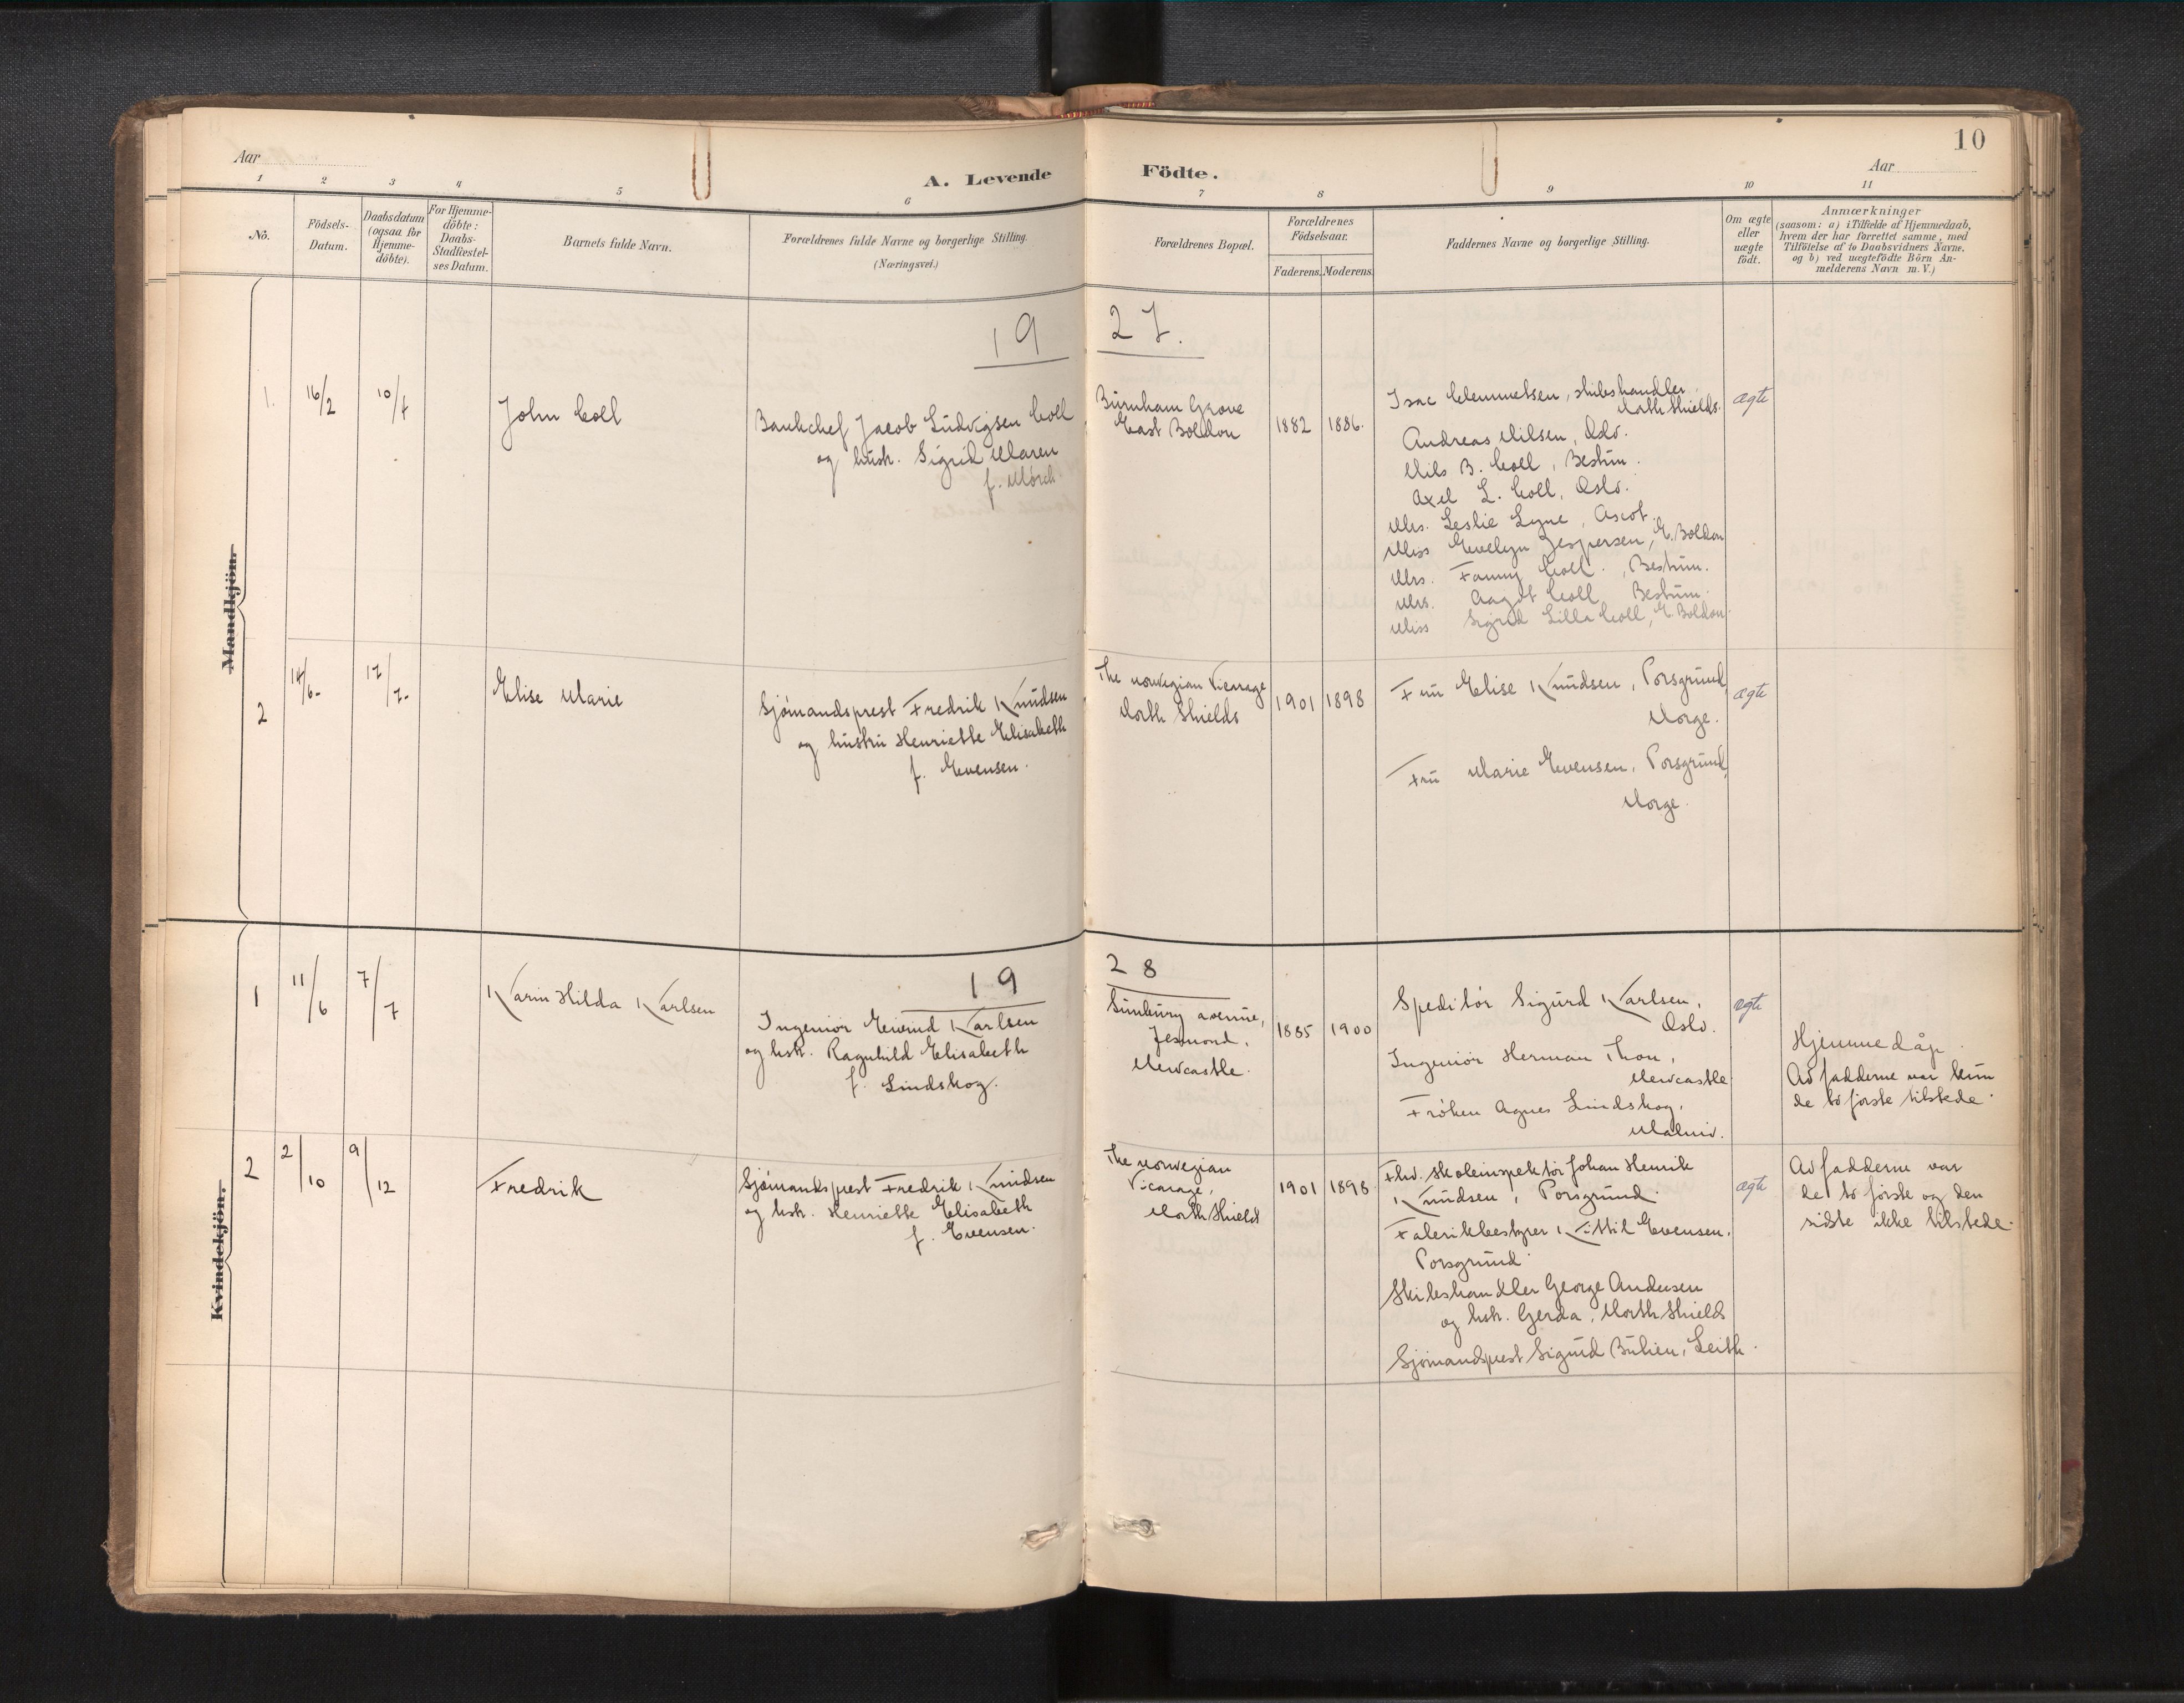 10
Aar
A. Levende Födte.
Aar
1 2 3 4 5 6 7 8 9 10 11
No.
Födsels-
Datum.
Daabsdatum
(ogsaa for
Hjemme-
döbte).
For Hjemme-
döbte:
Daabs-
Stadfæstel-
ses Datum.
Barnets fulde Navn.
Forældrenes fulde Navne og borgerlige Stilling.
(Næringsvei.)
Forældrenes Bopæl.
Forældrenes
Födselsaar.
Faderens. Moderens.
Faddernes Navne og borgerlige Stilling.
Om ægte
eller
uægte
födt.
Anmærkninger
(saasom: a) i Tilfælde af Hjemmedaab,
hvem der har forrettet samme, med
Tilföielse af to Daabsvidners Navne,
og b) ved uægtefödte Börn An-
melderens Navn m. V.)
Mandkjön.
19 27.
1. 16/2 10/4
John Coll
Bankchef Jacob Ludvigsen Coll
og hustr. Sigrid Maren
f. Mörch
Burnham Grove
East Boldon
1882 1886.
Isac Clemmetsen, skibshandler.
North Shields.
Andreas Nilsen, Oslo.
Nils B. Coll, Bestum.
Axel L. Coll, Oslo.
Mrs. Leslie Lyne, Ascot.
Miss Evelyn Jespersen, E. Boldon
Mrs. Fanny Coll, Bestum.
Mrs. Aagot Coll, Bestum.
Miss Sigrid Lilla Coll, E. Boldon.
ægte
2 14/6- 17/7-
Elise Marie
Sjömandsprest Fredrik Knudsen
og hustru Henriette Elisabeth
f. Evensen.
The norwegian Vicarage
North Shields
1901 1898
Fru Elise Knudsen, Porsgrund,
Norge.
Fru Marie Evensen, Porsgrund,
Norge.
ægte
Kvindekjön.
19 28
1 11/6 7/7
Karin Hilda Karlsen
Ingeniör Eivind Karlsen
og hstr. Ragnhild Elisabeth
f. Lindskog.
Sunbury avenue,
Jesmond,
Newcastle.
1885 1900
Speditör Sigurd Karlsen,
Oslo.
Ingeniör Herman Thon,
Newcastle
Fröken Agnes Lindskog,
Malmö.
ægte
Hjemmedåp.
Av fadderne var kun
de to förste tilstede.
2 2/10 9/12
Fredrik
Sjömandsprest Fredrik Knudsen
og hstr. Henriette Elisabeth
f. Evensen.
The norwegian
Vicarage,
North Shields
1901 1898
Fhv. skoleinspektör Johan Henrik
Knudsen, Porsgrund.
Fabrikbestyrer Kittil Evensen,
Porsgrund
Skibshandler George Andersen
og hstr. Gerda, North Shields
Sjömandsprest Sigurd Buhien, Leith.
ægte
Av fadderne var
de to förste og den
sidste ikke tilstede.